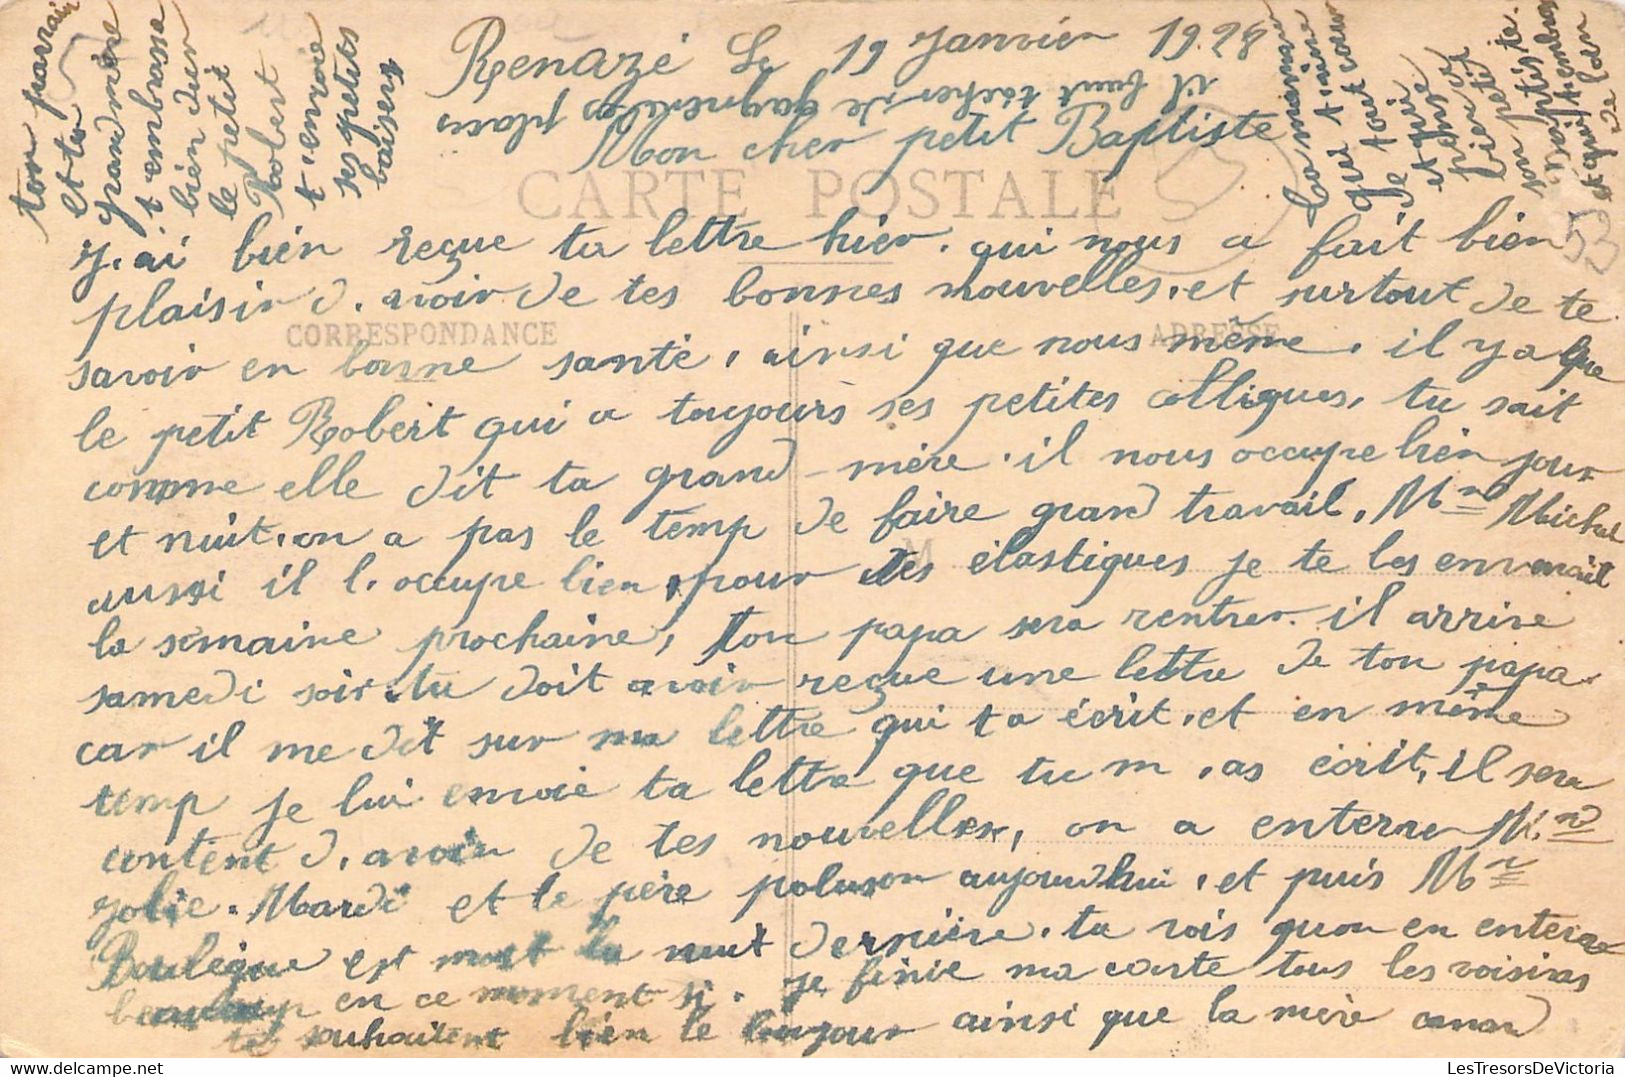 Renazé Le 19 Janvier 1928
il faut tâcher de gagner des
places
Mon cher petit Baptiste
CARTE POSTALE
J,ai bien reçue ta lettre hier. qui nous a fait bien
plaisir d,avoir de tes bonnes nouvelles, et surtout de te
CORRESPONDANCE
ADRESSE
savoir en bonne santé, ainsi que nous même, il y a que
le petit Robert qui a toujours ses petites colliques, tu sait
comme elle dit ta grand-mère. il nous occupe bien jour
et nuit, on a pas le temp de faire grand travail, Mr Michel
aussi il l,occupe bien, pour des élastiques je te les enverrait
M
la semaine prochaine, ton papa sera rentrer. il arrive
samedi soir. tu doit avoir reçue une lettre de ton papa.
car il me dit sur ma lettre qui ta écrit, et en même
temp je lui envoie ta lettre que tu m,as écrit, il sera
content d,avoir de tes nouvelles, on a enterrer Md
Jolie. Mardi et le père poluson aujourdhui, et puis Mr
Boulégue est mort la nuit dernière. tu vois quon en enterre
beaucoup en ce moment si. je finie ma carte tous les voisines
te souhaitent bien le bonjour ainsi que la mère canard
ton parrain
et ta
grandmère
t'embrasse
bien dun
le petit
Robert
t'envoie
ses petits
baisers
ta maman
qui t'aime
de tout cœur
et qui
pense
bien
petit
son ptiste.
Baptiste
et qui t'embrasse
de loin
53
www.LesTresorsDeVictoria